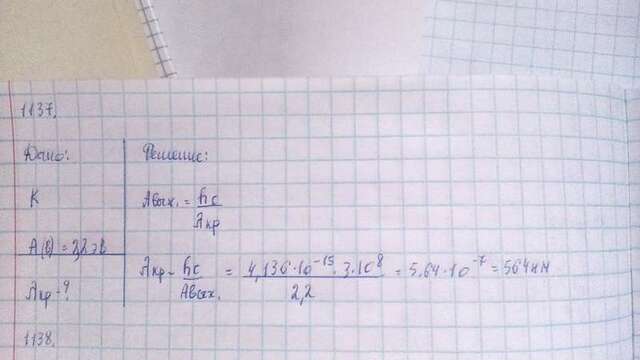 1137.
Дано:
К
A(в) = 2,2 эВ
λкр - ?
Решение:
Aвых. = hc / λкр
λкр - hc / Aвых. = 4,136·10⁻¹⁵·3·10⁸ / 2,2 = 5.64·10⁻⁷ = 564 нм
1138.